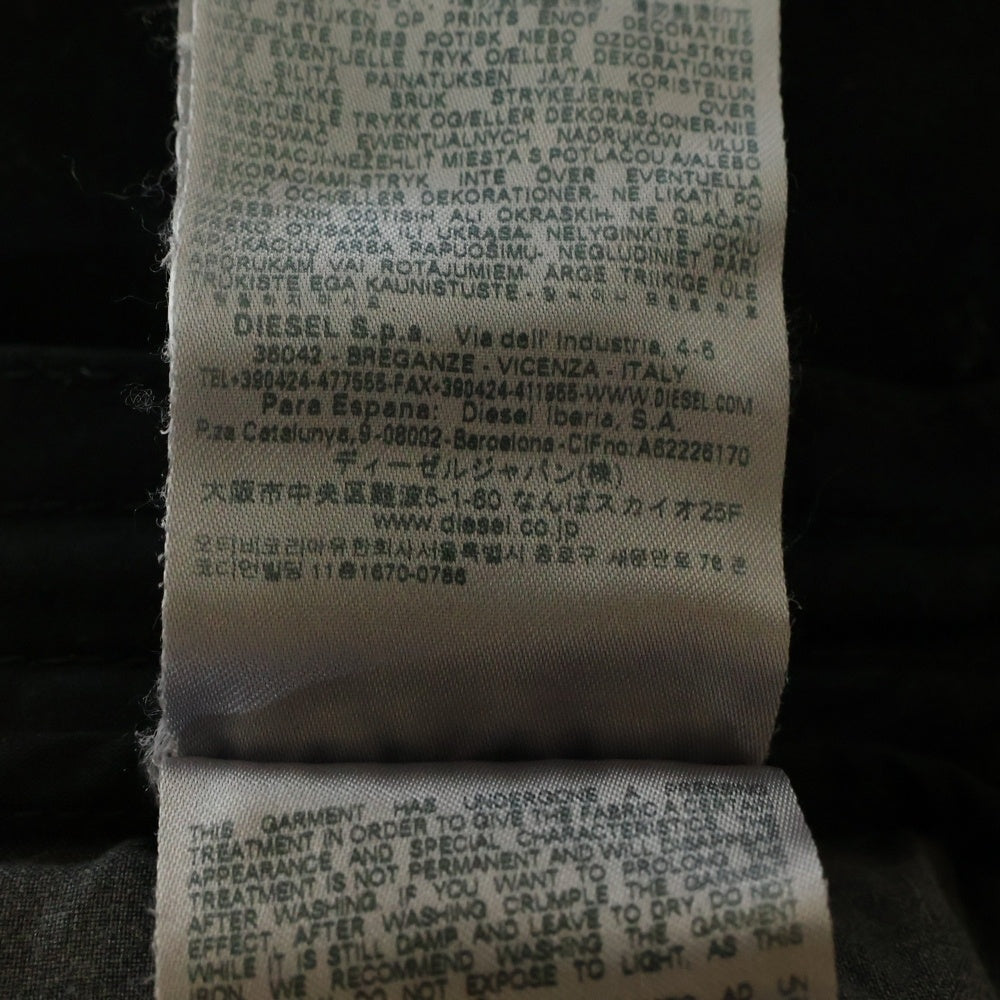 STRIJKEN OP PRINTS EN/OF DECORATIES
NEŽEHLETE PŘES POTISK NEBO OZDOBU-STRYG
IKKE EVENTUELLE TRYK O/ELLER DEKORATIONER
SILITÄ PAINATUKSEN JA/TAI KORISTELUN
BRUK STRYKEJERNET OVER
EVENTUELLE TRYKK OG/ELLER DEKORASJONER-NIE
PRASOWAĆ EWENTUALNYCH NADRUKÓW I/LUB
DEKORACJI-NEŽEHLIT MIESTA S POTLAČOU A/ALEBO
DEKORÁCIAMI-STRYK INTE ÖVER EVENTUELLA
TRYCK OCH/ELLER DEKORATIONER- NE LIKATI PO
ODTISIH ALI OKRASKIH- NE GLAČATI
OTISAKA ILI UKRASA- NELYGINKITE JOKIŲ
APLIKACIJŲ ARBA PAPUOŠIMŲ- NEGLUDINIET PĀRI
APDRUKĀM VAI ROTĀJUMIEM- ÄRGE TRIIKIGE ÜLE
TRÜKISTE EGA KAUNISTUSTE -
DIESEL S.p.a. Via dell' Industria, 4-6
36042 - BREGANZE - VICENZA - ITALY
TEL+390424-477555-FAX+390424-411955-WWW.DIESEL.COM
Para Espana: Diesel Iberia, S.A.
P.za Catalunya,9-08002-Barcelona-CIFno:A62226170
ディーゼルジャパン(株)
大阪市中央区難波5-1-60 なんばスカイオ25F
www.diesel.co.jp
오티비코리아유한회사서울특별시 종로구 새문안로 76 콘
코디언빌딩 11층1670-0786
THIS GARMENT HAS UNDERGONE A PRESSING
TREATMENT IN ORDER TO GIVE THE FABRIC A CERTAIN
APPEARANCE AND SPECIAL CHARACTERISTICS. THE
TREATMENT IS NOT PERMANENT AND WILL DISAPPEAR
AFTER WASHING. IF YOU WANT TO PROLONG THE
EFFECT, AFTER WASHING CRUMPLE THE GARMENT
WHILE IT IS STILL DAMP AND LEAVE TO DRY. DO NOT
IRON. WE RECOMMEND WASHING THE GARMENT
DO NOT EXPOSE TO LIGHT, AS THIS